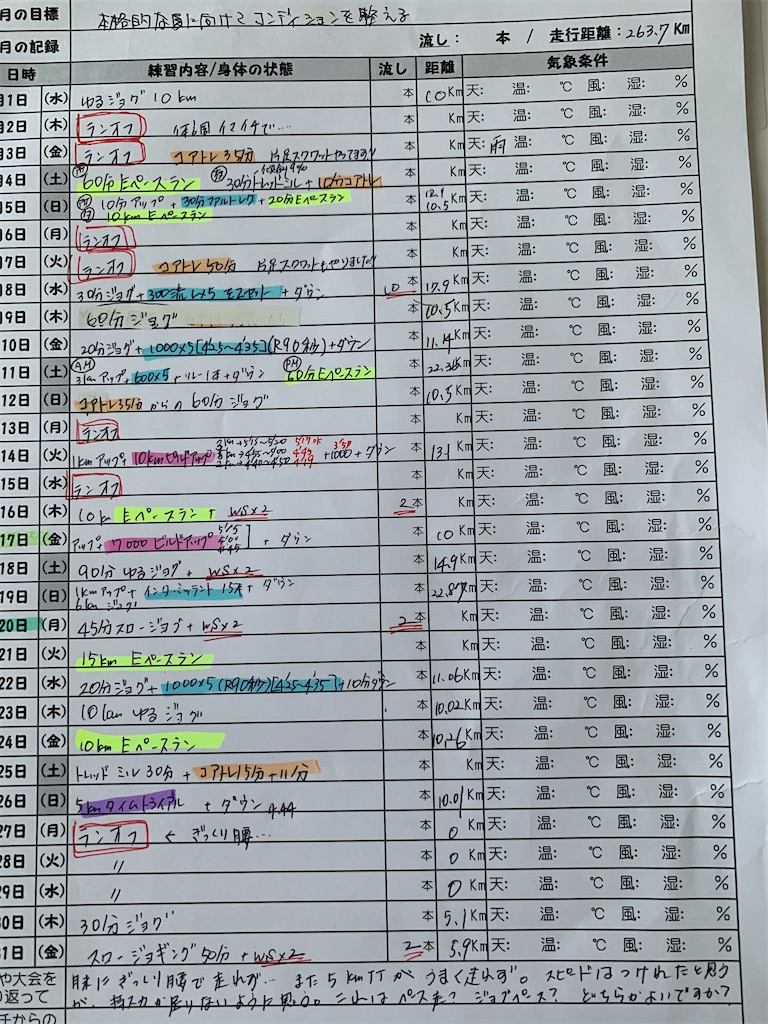 月の目標 本格的な夏に向けてコンディションを整える
月の記録 流し: 本 / 走行距離:263.7Km
日時 練習内容/身体の状態 流し 距離 気象条件
月1日 (水) ゆるジョグ 10km 本 10Km 天: 温: ℃ 風: 湿: %
月2日 (木) ランオフ 体調イマイチで.... 本 Km 天: 温: ℃ 風: 湿: %
月3日 (金) ランオフ コアトレ35分 片足スクワットやってます!! 本 Km 天:雨 温: ℃ 風: 湿: %
月4日 (土) 60分Eペースラン 30分トレッドミル+10分コアトレ 本 Km 天: 温: ℃ 風: 湿: %
月5日 (日) 10分アップ+30分ファルトレク+20分Eペースラン 10km Eペースラン 本 12.1 10.5 Km 天: 温: ℃ 風: 湿: %
月6日 (月) ランオフ 本 Km 天: 温: ℃ 風: 湿: %
月7日 (火) ランオフ コアトレ50分 片足スクワットもやりました!! 本 Km 天: 温: ℃ 風: 湿: %
月8日 (水) 30分ジョグ+300流し×5を2セット+ダウン 10本 Km 天: 温: ℃ 風: 湿: %
月9日 (木) 60分ジョグ 本 10.5Km 天: 温: ℃ 風: 湿: %
10日 (金) 20分ジョグ+1000×5[4'25~4'35](R90秒)+ダウン 本 11.14Km 天: 温: ℃ 風: 湿: %
11日 (土) AM 3kmアップ+600×5+リレー1本+ダウン PM 60分Eペースラン 本 Km 天: 温: ℃ 風: 湿: %
12日 (日) コアトレ35分からの60分ジョグ 本 10.5Km 天: 温: ℃ 風: 湿: %
13日 (月) ランオフ 本 Km 天: 温: ℃ 風: 湿: %
14日 (火) 1kmアップ+10kmビルドアップ +1000+ダウン 3'58 本 13.1Km 天: 温: ℃ 風: 湿: %
15日 (水) ランオフ 本 Km 天: 温: ℃ 風: 湿: %
16日 (木) 10km Eペースラン+WS×2 2本 Km 天: 温: ℃ 風: 湿: %
17日 (金) アップ+7000ビルドアップ 5'15 5'00 4'45 +ダウン 本 10Km 天: 温: ℃ 風: 湿: %
18日 (土) 90分ゆるジョグ+WS×2 本 14.9Km 天: 温: ℃ 風: 湿: %
19日 (日) 1kmアップ+インターミッテント15本+ダウン 6kmジョグ 本 22.87Km 天: 温: ℃ 風: 湿: %
20日 (月) 45分スロージョグ+WS×2 2本 Km 天: 温: ℃ 風: 湿: %
21日 (火) 15km Eペースラン 本 Km 天: 温: ℃ 風: 湿: %
22日 (水) 20分ジョグ+1000×5(R90秒)[4'25~4'35]+10分ダウン 本 11.06Km 天: 温: ℃ 風: 湿: %
23日 (木) 10kmゆるジョグ 本 10.02Km 天: 温: ℃ 風: 湿: %
24日 (金) 10km Eペースラン 本 10.26Km 天: 温: ℃ 風: 湿: %
25日 (土) トレッドミル30分+コアトレ15分+11分 本 Km 天: 温: ℃ 風: 湿: %
26日 (日) 5kmタイムトライアル+ダウン 本 10.01Km 天: 温: ℃ 風: 湿: %
27日 (月) ランオフ ← ぎっくり腰... 本 0Km 天: 温: ℃ 風: 湿: %
28日 (火) 〃 本 0Km 天: 温: ℃ 風: 湿: %
29日 (水) 〃 本 0Km 天: 温: ℃ 風: 湿: %
30日 (木) 30分ジョグ 本 5.1Km 天: 温: ℃ 風: 湿: %
31日 (金) スロージョギング50分+WS×2 2本 5.9Km 天: 温: ℃ 風: 湿: %
や大会を 月末にぎっくり腰で走れず... また5kmTTがうまく走れず。スピードはつけれたと思う
り返って が、持久力が足りないように思う。これはペース走? ジョグペース? どちらがよいですか?
チからの